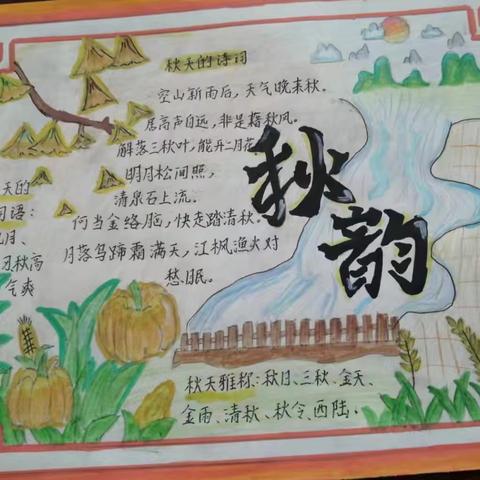 秋天的诗词
空山新雨后，天气晚来秋。
居高声自远，非是藉秋风。
解落三秋叶，能开二月花
明月松间照，
清泉石上流。
何当金络脑，快走踏清秋。
月落乌蹄霜满天，江枫渔火对
愁眠。
天的
词语：
月、
秋高
气爽
秋韵
秋天雅称：秋日、三秋、金天、
金雨、清秋、秋令、西陆、